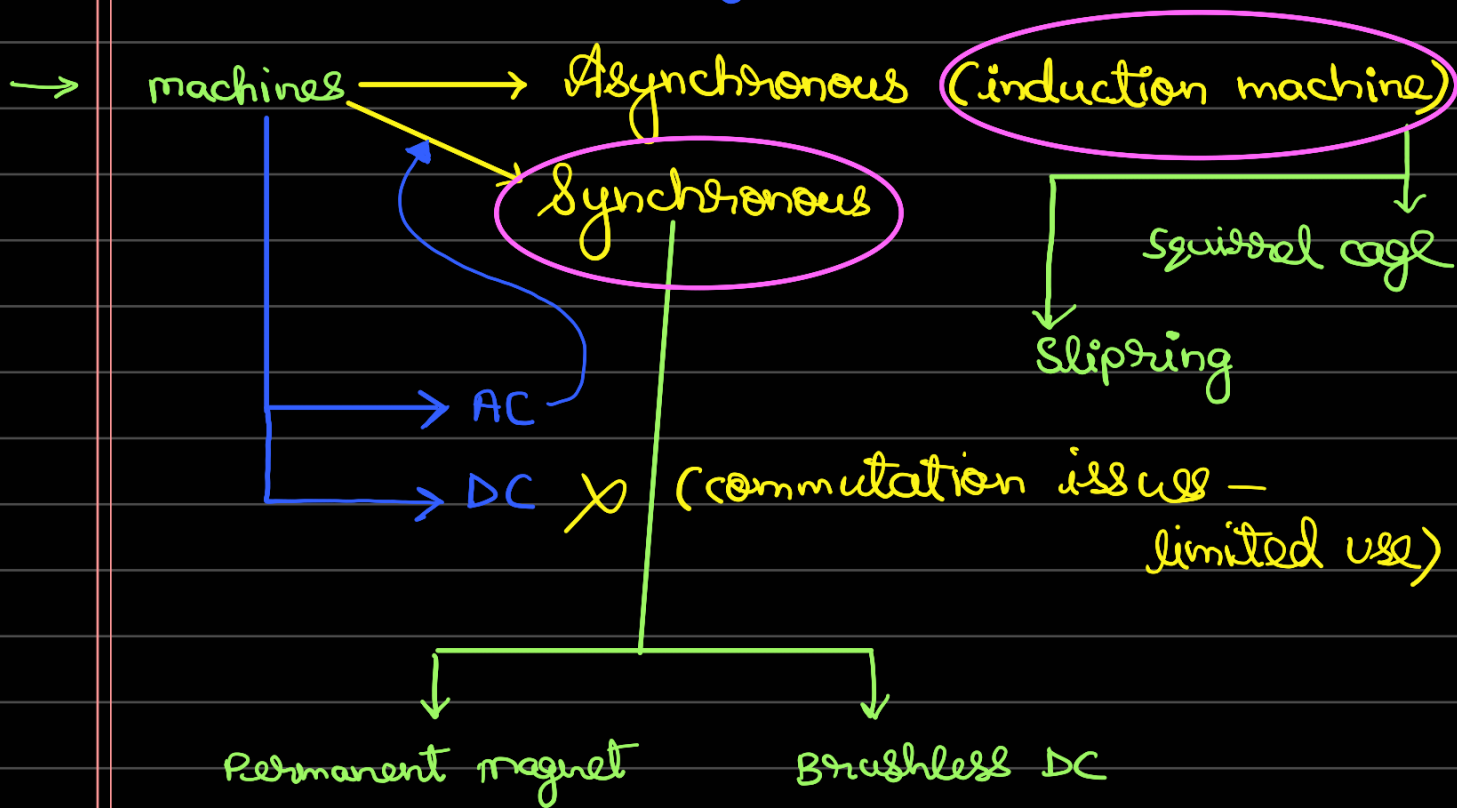 → machines → Asynchronous (induction machine)
Synchronous
Squirrel cage
Slipring
→ AC
→ DC X (commutation issues –
limited use)
Permanent magnet Brushless DC